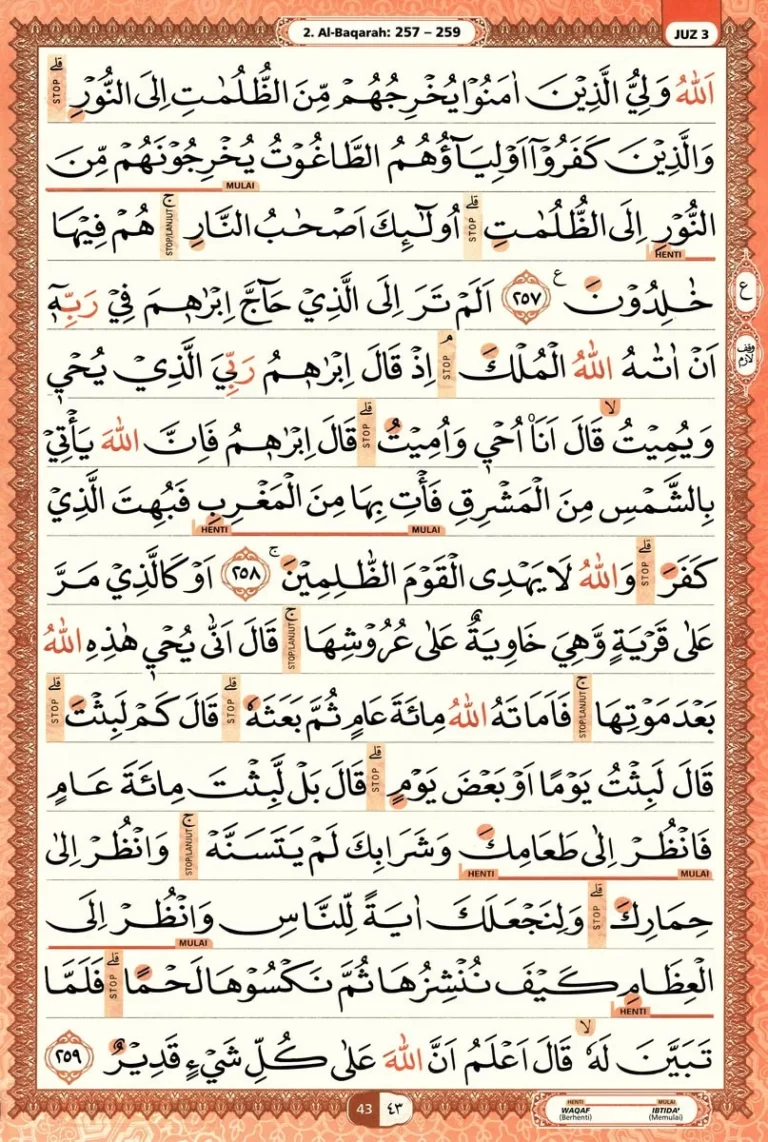 2. Al-Baqarah: 257 – 259
JUZ 3
اَللّٰهُ وَلِيُّ الَّذِيْنَ اٰمَنُوْا يُخْرِجُهُمْ مِّنَ الظُّلُمٰتِ اِلَى النُّوْرِ ۗ STOP
وَالَّذِيْنَ كَفَرُوْٓا اَوْلِيَاۤؤُهُمُ الطَّاغُوْتُ يُخْرِجُوْنَهُمْ مِّنَ
MULAI
النُّوْرِ اِلَى الظُّلُمٰتِ ۗ STOP اُولٰۤىِٕكَ اَصْحٰبُ النَّارِ ۚ STOP/LANJUT هُمْ فِيْهَا
HENTI
خٰلِدُوْنَ ࣖ ٢٥٧ اَلَمْ تَرَ اِلَى الَّذِيْ حَاۤجَّ اِبْرٰهٖمَ فِيْ رَبِّهٖٓ
ع
اَنْ اٰتٰىهُ اللّٰهُ الْمُلْكَ ۘ STOP اِذْ قَالَ اِبْرٰهٖمُ رَبِّيَ الَّذِيْ يُحْيٖ
وقف لازم
وَيُمِيْتُۙ قَالَ اَنَا۠ اُحْيٖ وَاُمِيْتُ ۗ STOP قَالَ اِبْرٰهٖمُ فَاِنَّ اللّٰهَ يَأْتِيْ
بِالشَّمْسِ مِنَ الْمَشْرِقِ فَأْتِ بِهَا مِنَ الْمَغْرِبِ فَبُهِتَ الَّذِيْ
MULAI HENTI
كَفَرَ ۗ STOP وَاللّٰهُ لَا يَهْدِى الْقَوْمَ الظّٰلِمِيْنَۚ ٢٥٨ اَوْ كَالَّذِيْ مَرَّ
عَلٰى قَرْيَةٍ وَّهِيَ خَاوِيَةٌ عَلٰى عُرُوْشِهَا ۚ STOP/LANJUT قَالَ اَنّٰى يُحْيٖ هٰذِهِ اللّٰهُ
بَعْدَ مَوْتِهَا ۚ STOP/LANJUT فَاَمَاتَهُ اللّٰهُ مِائَةَ عَامٍ ثُمَّ بَعَثَهٗ ۗ STOP قَالَ كَمْ لَبِثْتَ ۗ STOP
قَالَ لَبِثْتُ يَوْمًا اَوْ بَعْضَ يَوْمٍ ۗ STOP قَالَ بَلْ لَّبِثْتَ مِائَةَ عَامٍ
فَانْظُرْ اِلٰى طَعَامِكَ وَشَرَابِكَ لَمْ يَتَسَنَّهْ ۚ STOP/LANJUT وَانْظُرْ اِلٰى
MULAI HENTI
حِمَارِكَ ۗ STOP وَلِنَجْعَلَكَ اٰيَةً لِّلنَّاسِ وَانْظُرْ اِلَى
MULAI
الْعِظَامِ كَيْفَ نُنْشِزُهَا ثُمَّ نَكْسُوْهَا لَحْمًا ۗ STOP فَلَمَّا
HENTI
تَبَيَّنَ لَهٗ ۙ قَالَ اَعْلَمُ اَنَّ اللّٰهَ عَلٰى كُلِّ شَيْءٍ قَدِيْرٌ ٢٥٩
43 ٤٣
HENTI MULAI
WAQAF IBTIDA'
(Berhenti) (Memulai)